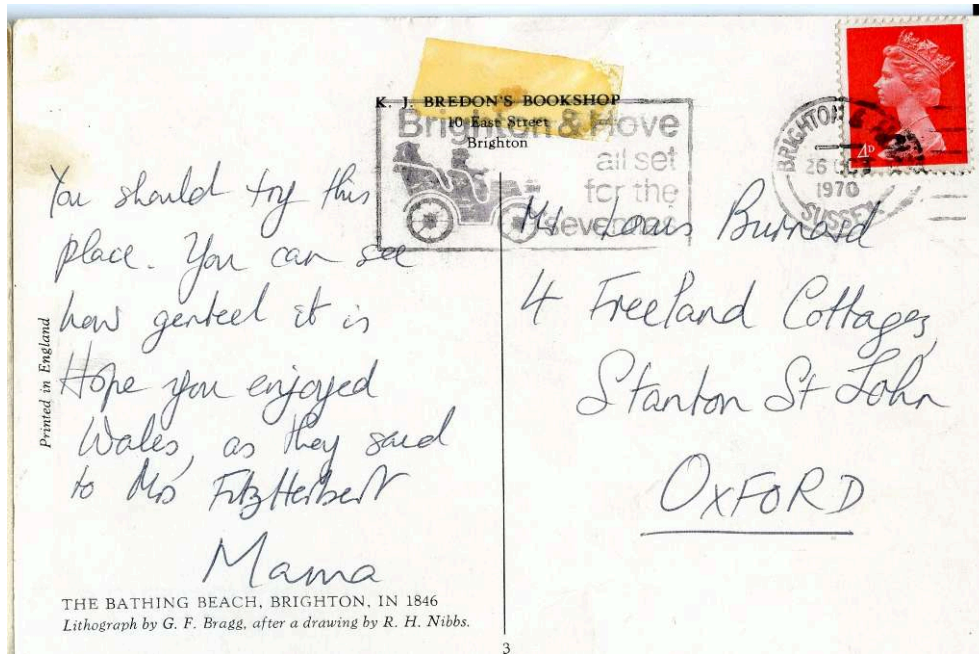 K. J. BREDON'S BOOKSHOP
10 East Street
Brighton
Brighton & Hove
all set
for the
seventies
BRIGHTON &
26
1970
SUSSEX
4D
You should try this
place. You can see
how genteel it is
Hope you enjoyed
Wales, as they said
to Mrs FitzHerbert
Mama
Louis Burnard
4 Freeland Cottages,
Stanton St John
OXFORD
Printed in England
THE BATHING BEACH, BRIGHTON, IN 1846
Lithograph by G. F. Bragg, after a drawing by R. H. Nibbs.
3